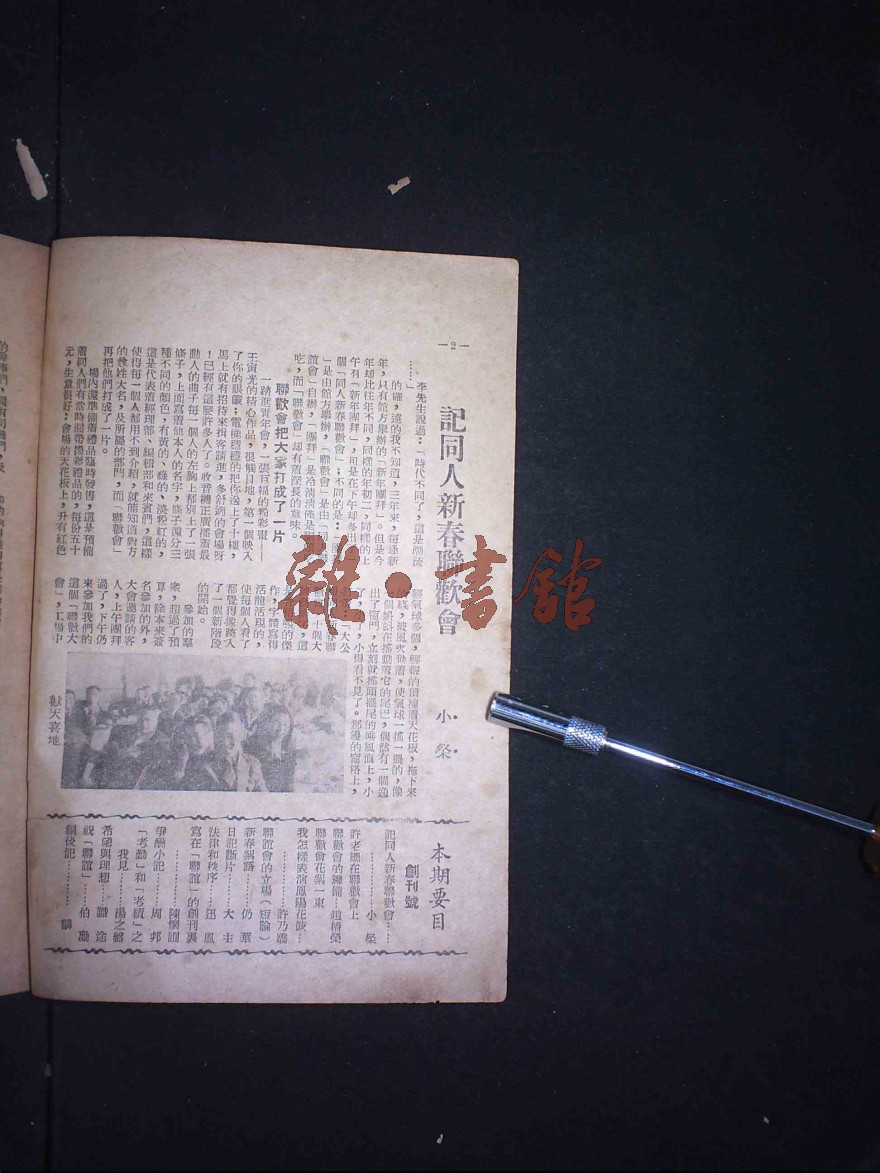 —2—
記同人新春聯歡會
小榮
李先生說過：「時代不同了，這是潮流
……」
的確，遠的我不知道，三年來，每逢新
年，只有館方舉辦的「新年團拜」。但是今
年却比往年不同，同樣的年初二，同樣的上
午有「新年團拜」，可是在下午却多出
個「同人新春聯歡會」；不同的是：
」是由館方舉辦，「聯歡會」是由「同
誼會」自辦，「團拜」是冷清清
吃，而「聯歡會」却有着深長的意味。
聯歡會把大家打成了一片
一踏進靑年會，一張巨幅的粉彩畫——
王寅光的精心作品，很觸目地，第一個映入
了你的眼簾；電梯穩穩的把你送上了十樓，
馬上就有招待來揖客請進，多舒適的會場呀
！已經有這麼許多人了。收音機正廣播着最
動人的曲子每一個人的左胸上都別上了一張
條子，上面寫着他本人的名字，條子還分三
種不同的顏色，有黃的、綠的、淡粉紅的，
這是代表着經理部、編輯部和來賓們，這樣
使得每一個人都用不到介紹，就能知道對方
的尊姓大名，及所屬的部門，而「聯歡會」
再把他們打成了一片。
場內還準備着禮品臨時發售，這是預備
着同人們有當時攜帶摸彩禮品的，每份五十
元，生意很好；會場的天花板上，升有紅色
輕氣球多個，輕輕的頂撞着天花板，拖下來
的綫，被風吹動着，使氣球一搖一擺的，像
個蝌蚪在搖動飛它的尾巴，偶然有一個逸
出了窗門，立刻就搖頭擺尾的乘風直上，小
了，小得看不見了。那邊的窗格上，
大公
春聯
十個大
，這
的傑
作，字體寫得
活龍活現的，
使每個人看了
都覺得像踏入
了一個新階段
的開始。
參加的羣
衆，超過了預
算，除本來簽
名參加的外，
大會邀請的客
人，上午團拜
過了，下午仍
來參加我們的
這個「聯歡大
會」，工場中
歡天喜地
本期要目
創刊號
記同人新春聯歡會……
…………小榮
許老總在聯歡會上
聯歡會的籌備…趙椿榮
聯歡會花絮一束
我怎樣表演鳳陽花鼓…
…………許乃騷
聯誼會的立場（短論）
新春獻辭……仍華
日記斷片……大主
法律和秩序……迅風
寫在「聯誼」的創刊裏
…………陳懷圳
爭酬小記……周邦
「考勤」和「考績」之
我見……湯之盤
希望與理想……識途
祝「聯誼」……伯勵
編後記……
雜·書館